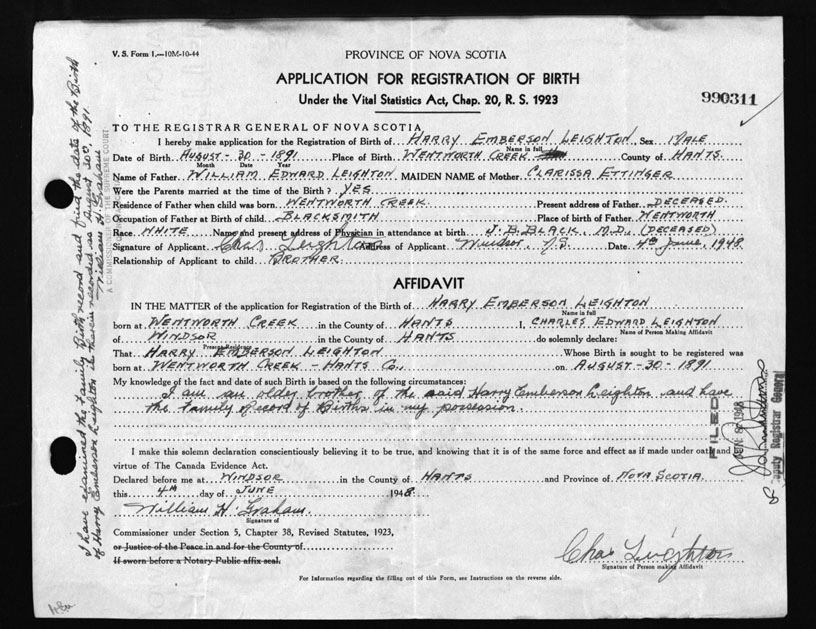 V. S. Form 1.—10M-10-44
PROVINCE OF NOVA SCOTIA
APPLICATION FOR REGISTRATION OF BIRTH
Under the Vital Statistics Act, Chap. 20, R. S. 1923
990311
TO THE REGISTRAR GENERAL OF NOVA SCOTIA
I hereby make application for the Registration of Birth of HARRY EMBERSON LEIGHTON Sex MALE
Name in full
Date of Birth AUGUST - 30 - 1891 Place of Birth WENTWORTH CREEK County of HANTS.
Month Date Year
Name of Father WILLIAM EDWARD LEIGHTON MAIDEN NAME of Mother CLARISSA ETTINGER
Were the Parents married at the time of the Birth? YES
Residence of Father when child was born WENTWORTH CREEK. Present address of Father DECEASED.
Occupation of Father at Birth of child BLACKSMITH Place of birth of Father WENTWORTH
Race WHITE Name and present address of Physician in attendance at birth J. B. BLACK, M.D., (DECEASED)
Signature of Applicant Chas Leighton Address of Applicant Windsor, N.S. Date 4th June, 1948
Relationship of Applicant to child BROTHER.
AFFIDAVIT
IN THE MATTER of the application for Registration of the Birth of HARRY EMBERSON LEIGHTON
Name in full
born at WENTWORTH CREEK in the County of HANTS I, CHARLES EDWARD LEIGHTON
Name of Person Making Affidavit
of WINDSOR in the County of HANTS do solemnly declare:
Present Residence
That HARRY EMBERSON LEIGHTON Whose Birth is sought to be registered was
born at WENTWORTH CREEK - HANTS CO., on AUGUST - 30 - 1891
My knowledge of the fact and date of such Birth is based on the following circumstances:
I am an older brother of the said Harry Emberson Leighton and have
the Family Record of Births in my possession.
I make this solemn declaration conscientiously believing it to be true, and knowing that it is of the same force and effect as if made under oath and by
virtue of The Canada Evidence Act.
Declared before me at WINDSOR in the County of HANTS and Province of NOVA SCOTIA.
this 4TH day of JUNE 1948
William H. Graham.
Signature of
Commissioner under Section 5, Chapter 38, Revised Statutes, 1923,
or Justice of the Peace in and for the County of
If sworn before a Notary Public affix seal.
Chas Leighton
Signature of Person making Affidavit
For Information regarding the filling out of this Form, see Instructions on the reverse side.
I have examined the Family Birth record and find the date of the Birth
of Harry Emberson Leighton is therein recorded as August 30, 1891.
William H. Graham
A COMMISSIONER OF THE SUPREME COURT
FILED
1948
Deputy Registrar General